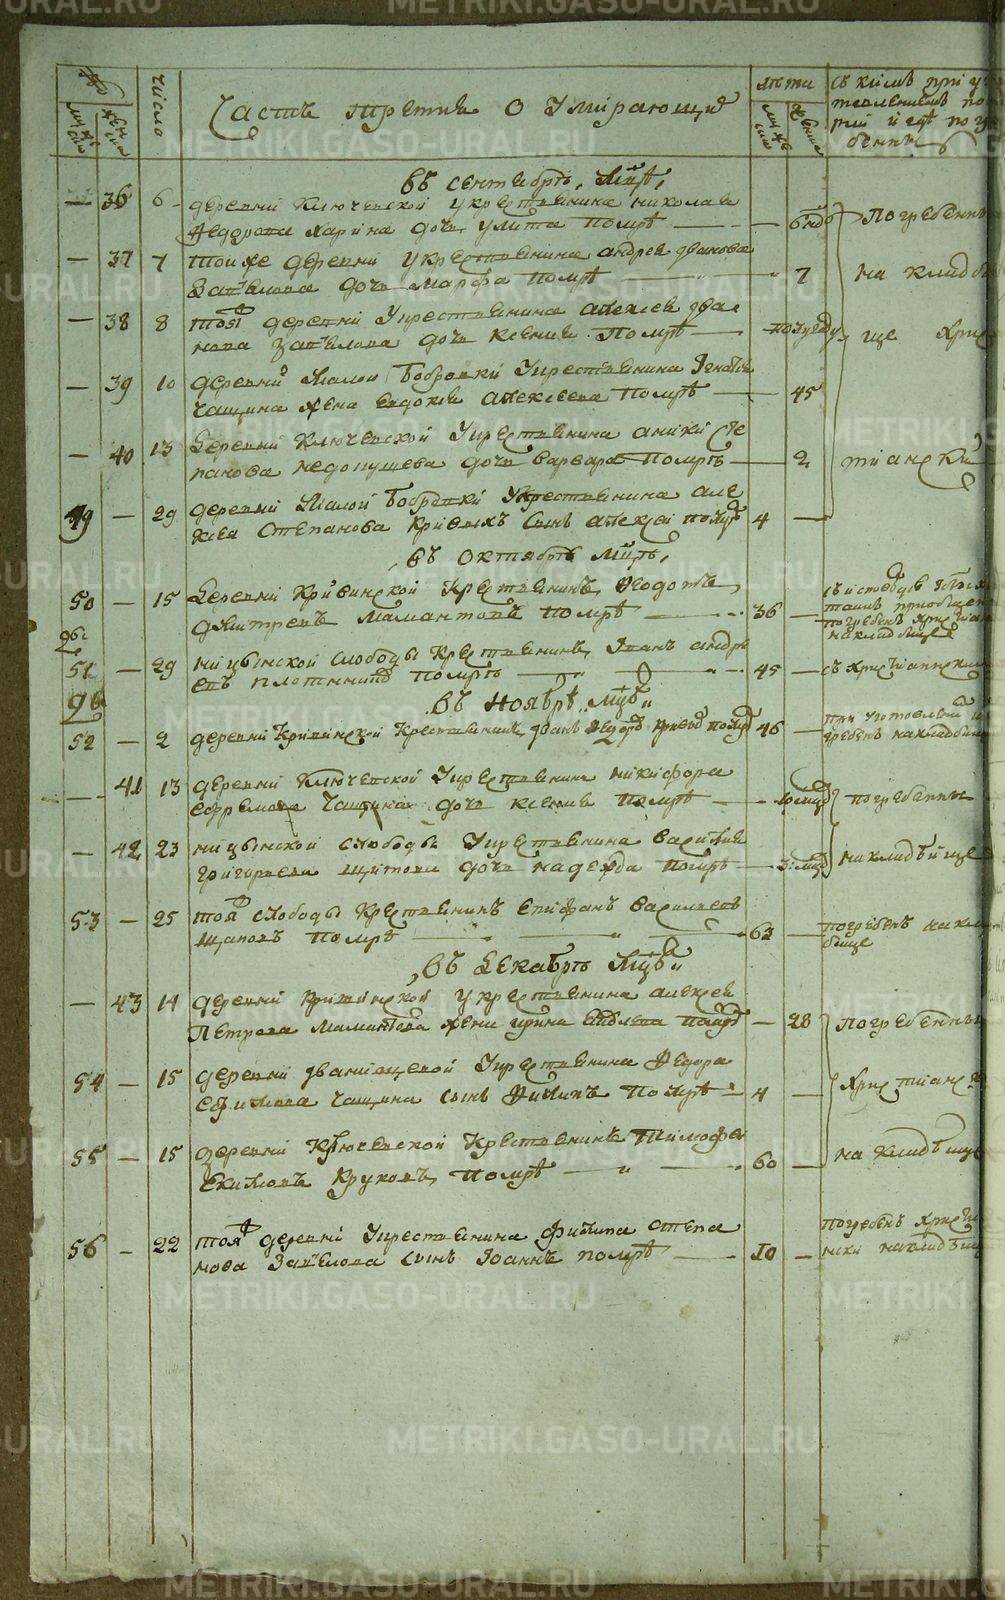 METRIKI.GASO-URAL.RU
число
Часть третия о умирающих
лѣта
съ кимъ при
женска
бенны
въ сентябрѣ Мцѣ
36 6 деревни Ключевской у крестьянина николая
Ѳедорова Ларина дочь улита помрѣ
Погребенны
37 7 тоиже деревни у крестьянина андрея Иванова
дочь марфа помрѣ 7
на кладби
38 8 тоя деревни у крестьянина алексея Ива
нова дочь ксения помрѣ полугоду
ще Хрис
39 10 деревни Малои Бобровки у крестьянина Игнатья
Чащина жена евдокия алексеева помрѣ 45
40 13 Деревни Ключевской у крестьянина аники Сте
панова недопущева дочь варвара помрѣ 2
тианскии
49 29 деревни Малой Бобровки у крестьянина але
ксея Степанова Кривыхъ сынъ алексеи помрѣ 4
въ октябрѣ Мцѣ
50 15 Деревни Кривинской Крестьянинъ Ѳедотъ
Дмитревъ Мамантовъ помрѣ 36
погребенъ Христиан
на кладбище
51 29 ницынской слободы Крестьянинъ Иванъ андре
евъ плотниковъ помрѣ 45
съ Христианским
въ Ноябрѣ Мцѣ
52 2 деревни Кривинской Крестьянинъ Иванъ Ѳедоровъ Кривыхъ помрѣ 46
гребенъ на кладбище
41 13 деревни Ключевской у крестьянина никифора
Ефремова Чащина дочь ксения помрѣ
погребенны
42 23 ницынской слободы у крестьянина Василия
григорьева щитова дочь надежда помрѣ 3
на кладбище
53 25 тоя слободы Крестьянинъ Епифанъ Васильевъ
Щаповъ помрѣ 63
погребенъ на клад
бище
въ Декабрѣ Мцѣ
43 14 деревни Кривинской у крестьянина алексея
Петрова Мамантова жена ирина помрѣ 28
Погребенны
54 15 деревни Иванищевой у крестьянина Ѳедора
Ефимова Чащина сынъ Филипъ помрѣ 4
Христианс
55 15 деревни Ключевской Крестьянинъ Тимофеи
Екимовъ Круковъ помрѣ 60
на кладбище
56 22 тоя деревни у крестьянина Филипа Степа
нова сынъ Иоаннъ помрѣ 10
погребенъ Христиа
нски на кладбище